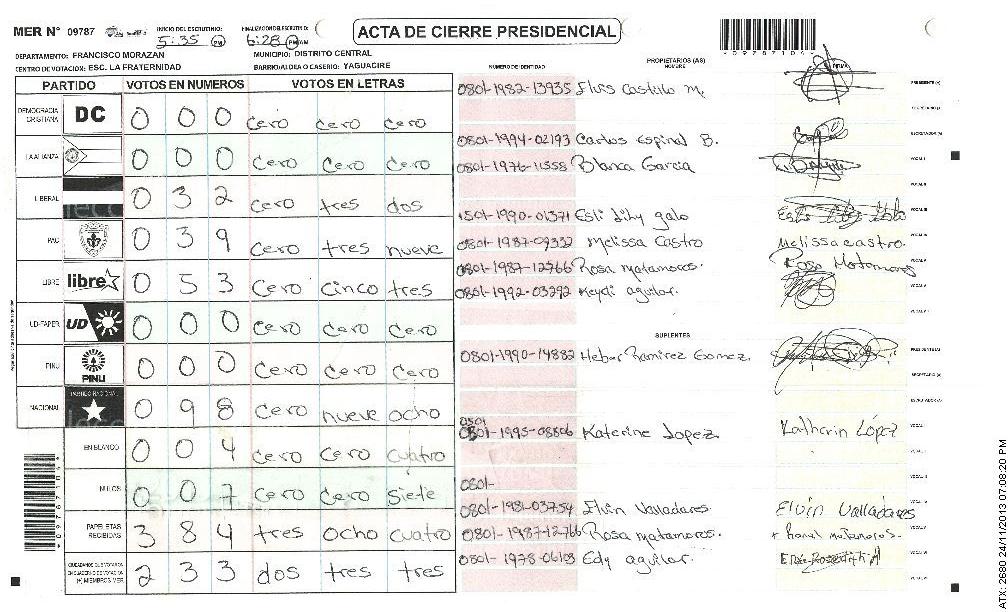 MER N° 09787 INICIO DEL ESCRUTINIO: 5:35 PM FINALIZACION DEL ESCRUTINIO: 6:28 PM AM
ACTA DE CIERRE PRESIDENCIAL
DEPARTAMENTO: FRANCISCO MORAZAN MUNICIPIO: DISTRITO CENTRAL
CENTRO DE VOTACION: ESC. LA FRATERNIDAD BARRIO/ALDEA O CASERIO: YAGUACIRE
PARTIDO VOTOS EN NUMEROS VOTOS EN LETRAS
DEMOCRACIA CRISTIANA DC 0 0 0 cero cero cero
LA ALIANZA 0 0 0 cero cero cero
LIBERAL 0 3 2 cero tres dos
PAC 0 3 9 cero tres nueve
LIBRE libre 0 5 3 cero cinco tres
UD-FAPER UD 0 0 0 cero cero cero
PINU PINU 0 0 0 cero cero cero
NACIONAL PARTIDO NACIONAL 0 9 8 cero nueve ocho
EN BLANCO 0 0 4 cero cero cuatro
NULOS 0 0 7 cero cero siete
PAPELETAS RECIBIDAS 3 8 4 tres ocho cuatro
CIUDADANOS QUE VOTARON EN CUADERNO DE VOTACION (+) MIEMBROS MER 2 3 3 dos tres tres
NUMERO DE IDENTIDAD PROPIETARIOS (AS) NOMBRE FIRMA
0801-1982-13935 Elvis Castillo M. PRESIDENTE (A)
SECRETARIO (A)
0801-1994-02193 Carlos Espinal B. ESCRUTADOR (A)
0801-1976-11558 Blanca Garcia VOCAL I
VOCAL II
1501-1990-01371 Esli Lily galo VOCAL III
0801-1987-09332 Melissa Castro Melissa castro. VOCAL IV
0801-1987-12766 Rosa matamoros. Rosa Matamoros VOCAL V
0801-1992-03292 Keydi aguilar. VOCAL VI
SUPLENTES
0801-1990-14882 Heber Ramirez Gomez. PRESIDENTE (A)
SECRETARIO (A)
ESCRUTADOR (A)
0801-1995-08806 Katerine Lopez Katherin López VOCAL I
VOCAL II
0801-
0801-1981-03754 Elvin Valladares Elvin Valladares
0801-1987-12766 Rosa matamoros. VOCAL V
0801-1978-06103 Edy aguilar. VOCAL VI
*09787104*
ATX: 2680 24/11/2013 07:08:20 PM